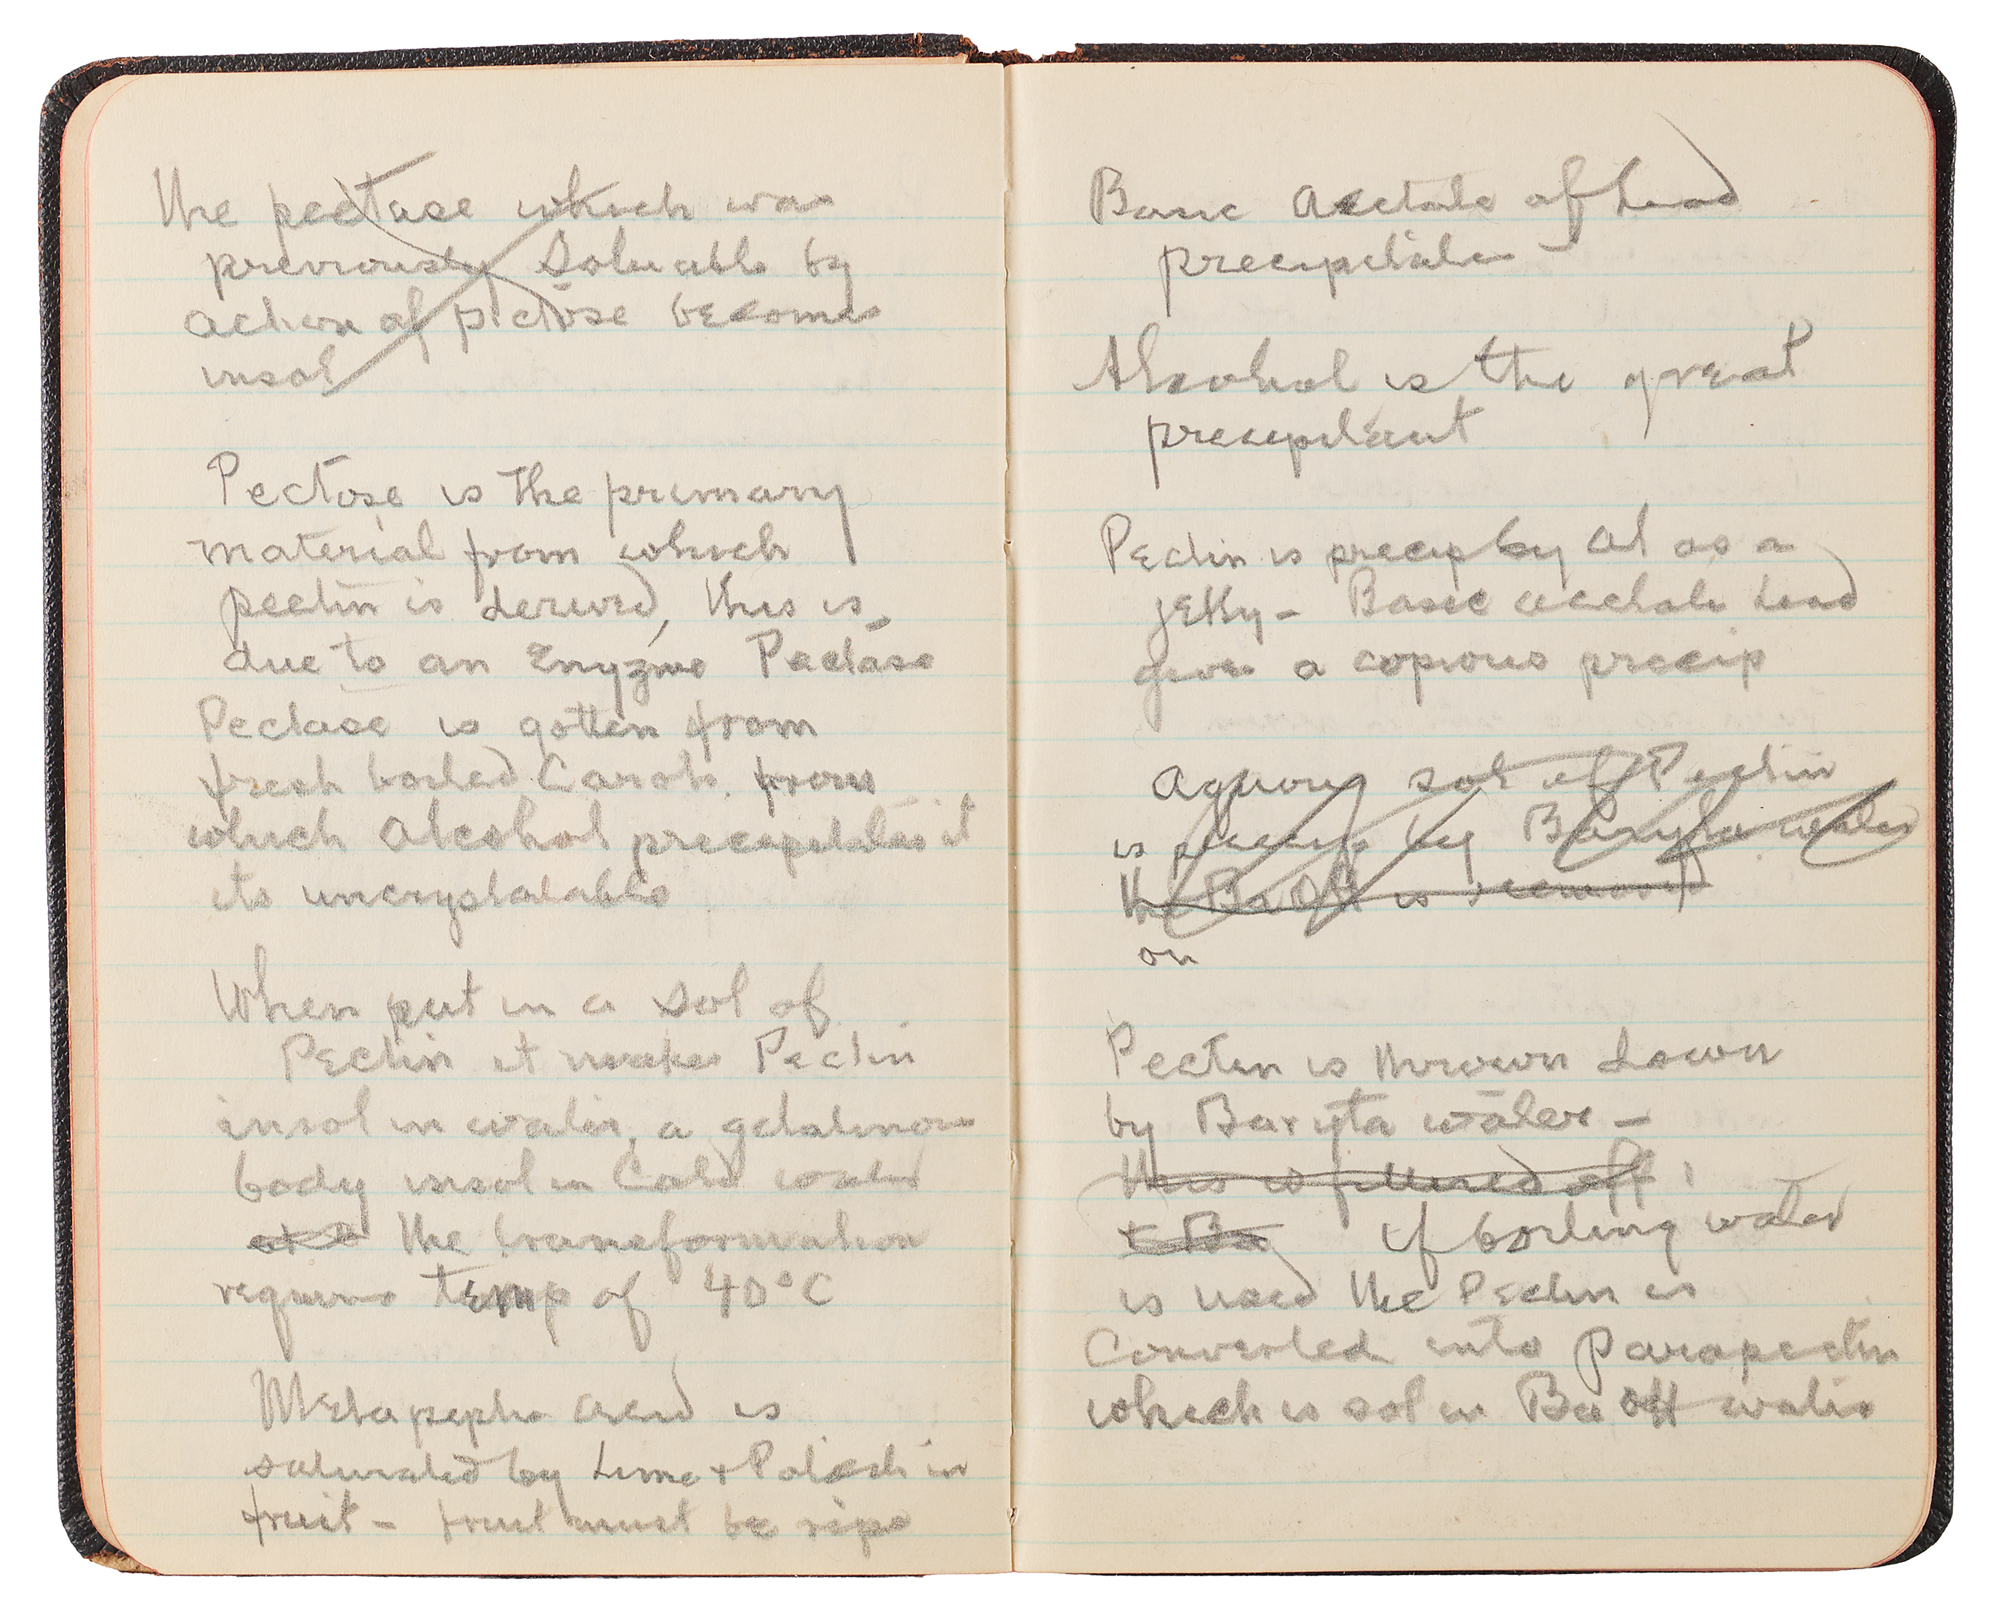 The pectase which was
previously Soluable by
action of pictose becomes
insol
Pectose is the primary
material from which
pectin is derived, this is
due to an Enyzme Pectase
Pectase is gotten from
fresh boiled Carots. from
which Alcohol precepitates it
its uncrystalable
When put in a Sol of
Pectin it makes Pectin
insol in water, a gelatinous
body insol in Cold water
the transformation
requires temp of 40°C
Metapeptic acid is
saturated by Lime + Potash in
fruit – fruit must be ripe
Basic Acetate of Lead
precepitates
Alcohol is the great
precepitant
Pectin is precip by Al as a
jelly – Basic acetate Lead
gives a copious precip
Aquous sol of Pectin
is precip by Baryta water
the BaOH is removed
on
Pectin is thrown down
by Baryta water –
this is filtered off
& Ba if boiling water
is used the Pectin is
Converted into Parapectin
which is sol in BaOH water